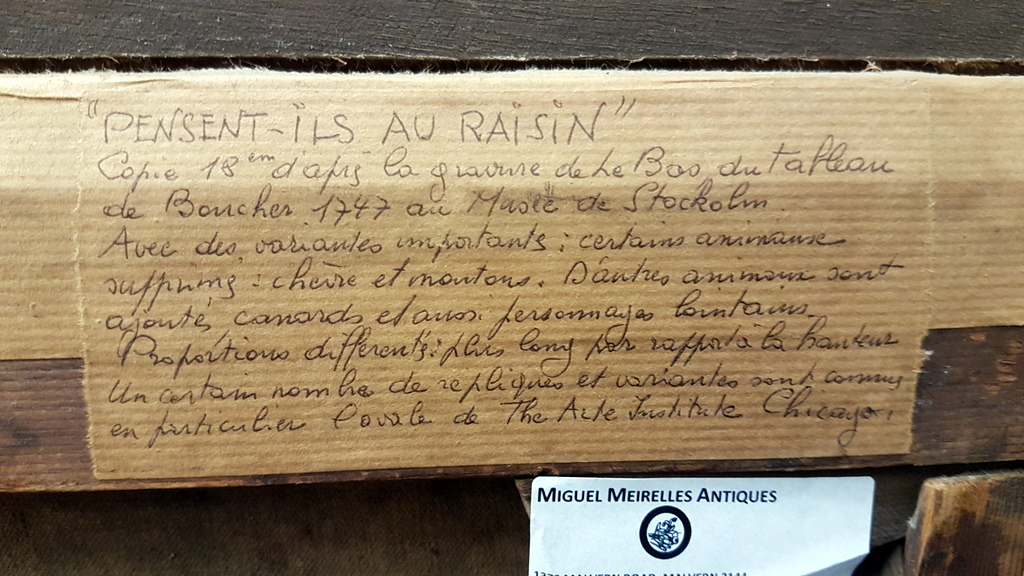 "PENSENT-ÏLS AU RAÏSÏN"
Copie 18èm d'après la gravure de Le Bas du tableau
de Boucher 1747 au Musée de Stockolm
Avec des variantes importantes : certains animaux
supprimés : chèvre et moutons. D'autres animaux sont
ajoutés, canards et aussi personnages lointains.
Proportions différentes : plus long par rapport à la hauteur
Un certain nombre de répliques et variantes sont connues
en particulier l'ovale de The Arte Institute Chicago.
MIGUEL MEIRELLES ANTIQUES
MALVERN ROAD, MALVERN 3144